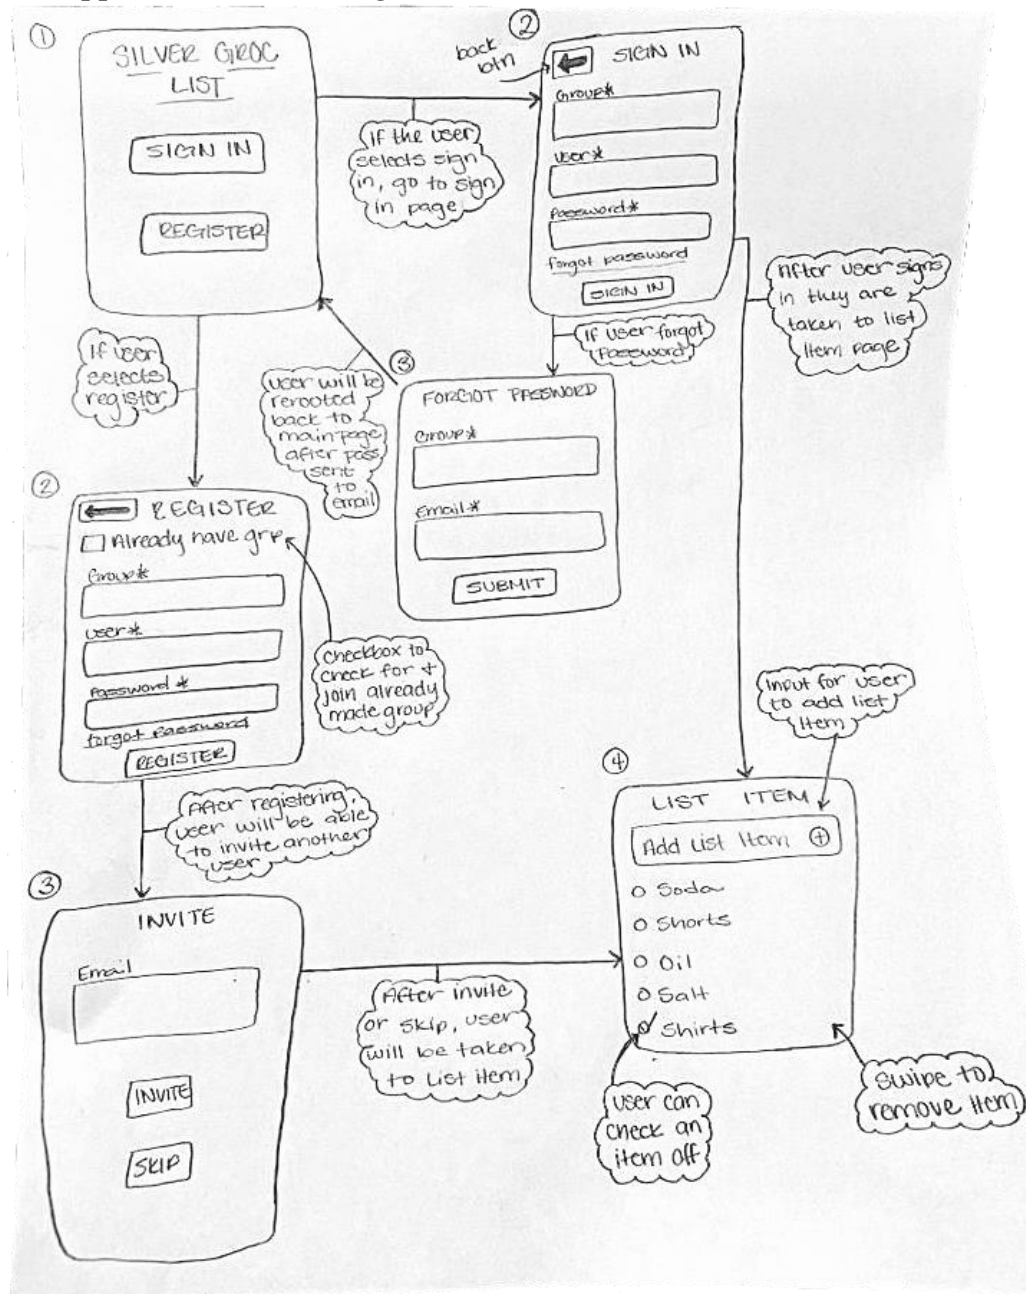 1
SILVER GROC
LIST
SIGN IN
REGISTER
If the user
selects sign
in, go to sign
in page
2
back
btn
SIGN IN
Group*
User*
Password*
forgot password
SIGN IN
If user forgot
Password
After user signs
in they are
taken to list
Item page
If user
selects
register
user will be
rerooted
back to
main page
after pass
sent
to
email
3
FORGOT PASSWORD
Group*
Email*
SUBMIT
2
REGISTER
Already have grp
Group*
User*
Password *
forgot password
REGISTER
checkbox to
check for +
join already
made group
After registering,
user will be able
to invite another
user
3
INVITE
Email
INVITE
SKIP
After invite
or skip, user
will be taken
to List Item
Input for user
to add list
Item
4
LIST ITEM
Add List Item +
Soda
Shorts
Oil
Salt
Shirts
User can
check an
item off
Swipe to
remove Item